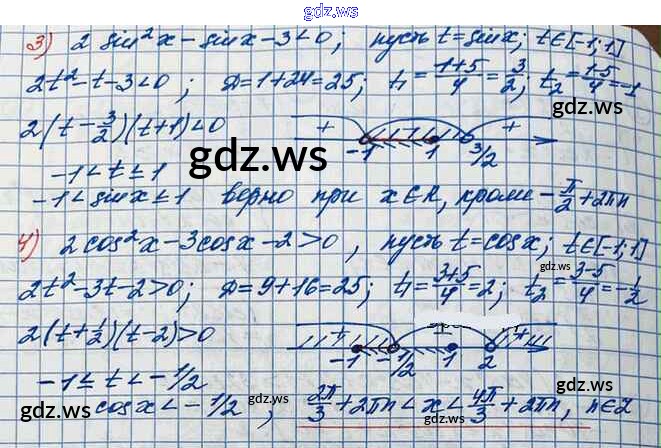 gdz.ws
3) 2 sin²x - sinx - 3 < 0; пусть t = sinx; t∈[-1;1]
2t² - t - 3 < 0; D = 1 + 24 = 25; t₁ = (1+5)/4 = 3/2; t₂ = (1-5)/4 = -1
gdz.ws
2(t - 3/2)(t + 1) < 0
+ -1 1 3/2 +
gdz.ws
gdz.ws
-1 < t ≤ 1
-1 < sinx ≤ 1 верно при x∈R, кроме -π/2 + 2πn
4) 2cos²x - 3cosx - 2 > 0, пусть t = cosx; t∈[-1;1]
gdz.ws
2t² - 3t - 2 > 0; D = 9 + 16 = 25; t₁ = (3+5)/4 = 2; t₂ = (3-5)/4 = -1/2
2(t + 1/2)(t - 2) > 0
+ -1 -1/2 - 1 2 +
-1 ≤ t < -1/2
gdz.ws
gdz.ws
cosx < -1/2; 2π/3 + 2πn < x < 4π/3 + 2πn, n∈Z
gdz.ws